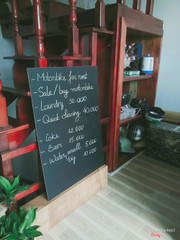 - Motorbike for rent
- Sale / buy motorbike
- Laundry 30.000
- Quick cleaning 40.000
- Coke 12.000
- Beer 15.000
- Water small 5.000
big 10.000